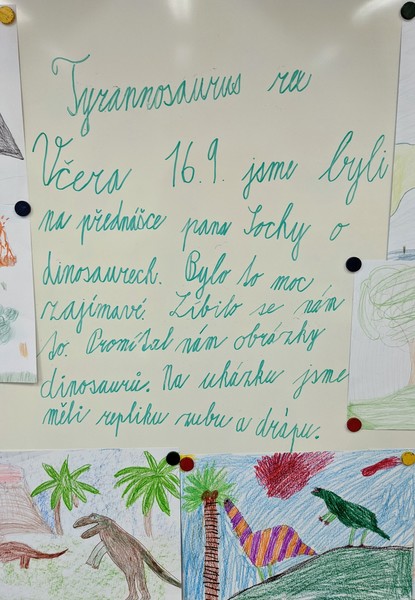 Tyrannosaurus rex
Včera 16.9. jsme byli
na přednášce pana Sochy o
dinosaurech. Bylo to moc
zajímavé. Líbilo se nám
to. Promítal nám obrázky
dinosaurů. Na ukázku jsme
měli repliku zubu a drápu.